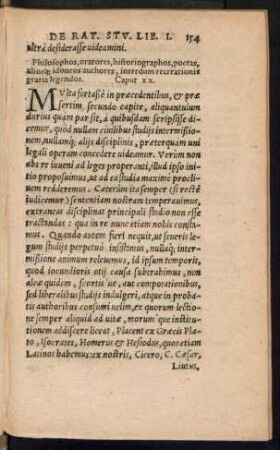 DE RAT. STV. LIB. I. 154
ultrà desiderasse uideamini.
Philosophos, oratores, historiographos, poetas,
aliosq; idoneos authores, interdum recreationis
gratia legendos. Caput XX.
MVlta fortasse in præcedentibus, & præ
sertim, secundo capite, aliquantulum
durius quàm par sit, à quibusdam scripsisse di
cemur, quòd nullam ciuilibus studijs intermissio
nem, nullamq; alijs disciplinis, præterquam uni
legali operam concedere uideamur. Verùm non
abs re iuueni ad leges properanti, illud ipso ini
tio proposuimus, ut ad ea studia maximè procli
uem redderemus. Cæterùm ita semper (si rectè
iudicemur) sententiam nostram temperauimus,
extraneas disciplinas principali studio non esse
tractandas: qua in re nunc etiam nobis consta
mus. Quando autem fieri nequit, ut seueris le
gum studijs perpetuò insistamus, nullaq; inter-
missione animum releuemus, id ipsum temporis,
quod iocundioris otij causa subtrahimus, non
aleæ quidem, scortis'ue, aut compotationibus,
sed liberalibus studijs indulgeri, atque in proba-
tis authoribus consumi uelim, ex quorum lectio
ne semper aliquid ad uitæ, morum'que institu-
tionem addiscere liceat. Placent ex Græcis Pla
to, Isocrates, Homerus & Hesiodus, quos etiam
Latinos habemus: ex nostris, Cicero, C. Cæsar,
Liuius,